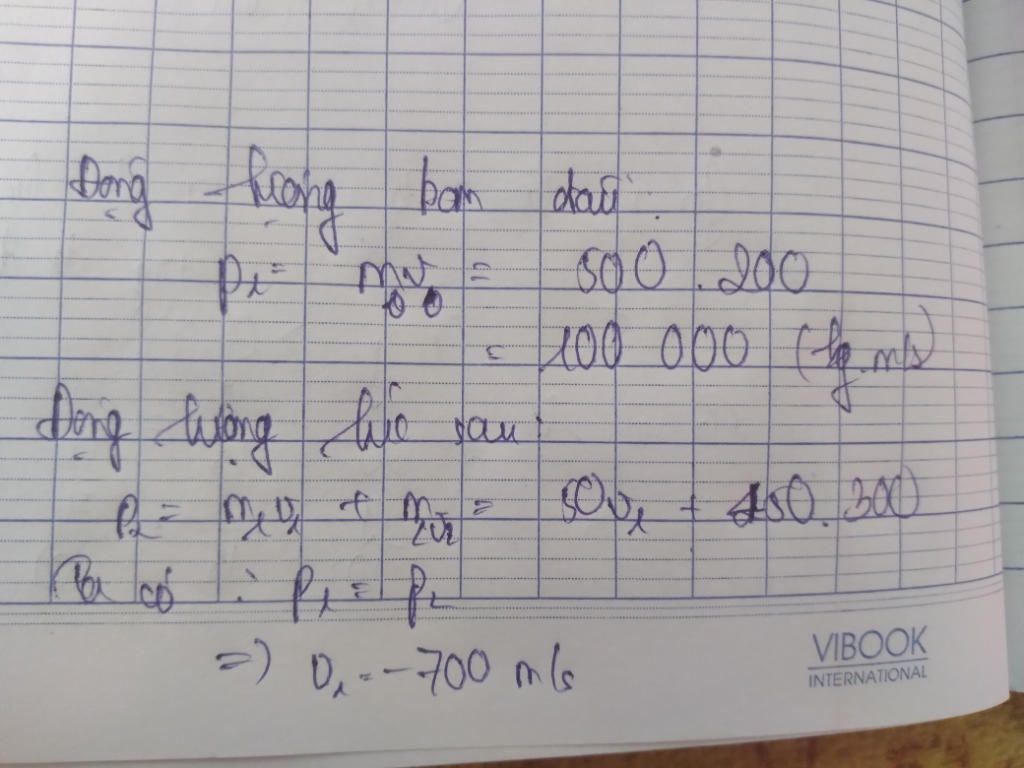 Động lượng ban đầu:
p₁ = m₀v₀ = 500 . 200
= 100 000 (kg.m/s)
Động lượng lúc sau:
p₂ = m₁v₁ + m₂v₂ = 50v₁ + 450.300
Ta có : p₁ = p₂
=> v₁ = -700 m/s
VIBOOK
INTERNATIONAL